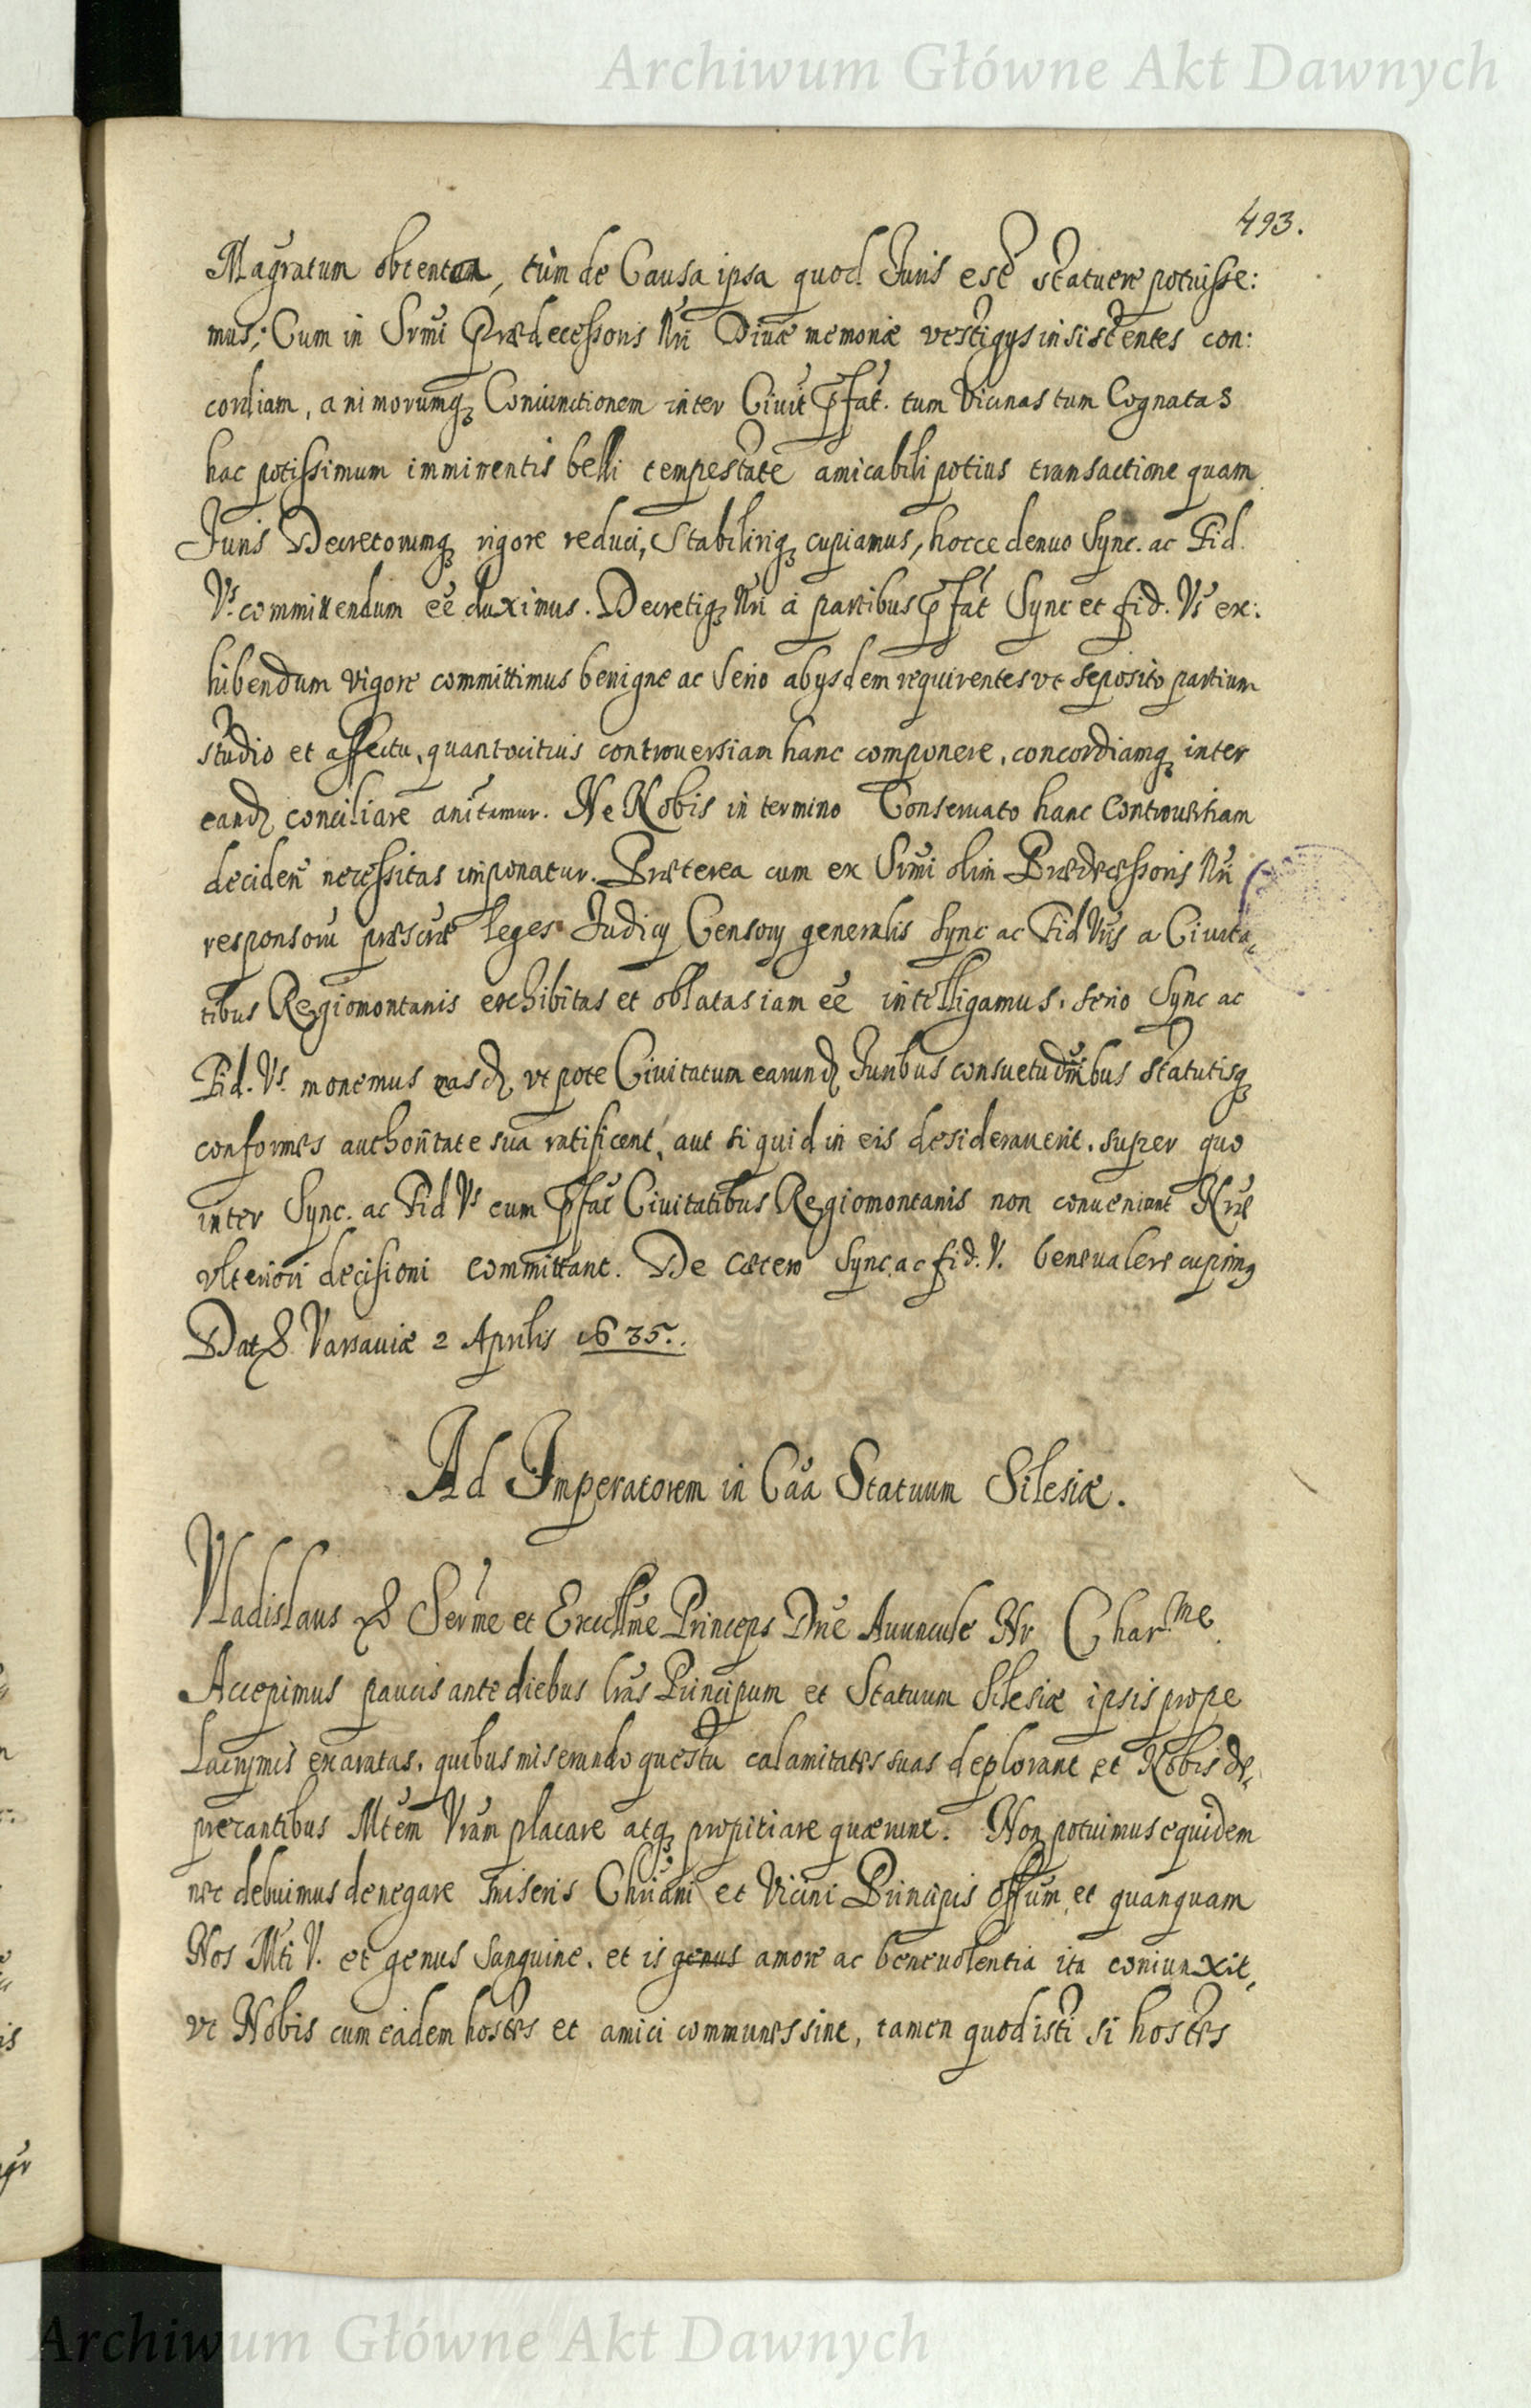 Archiwum Główne Akt Dawnych
493.
Magratum obtenta, tùm de Causa ipsa quod Juris est statuere potuisse:
mus; Cum in Srmi Prædecessoris Nri Divæ memoriæ vestigys insistentes con:
cordiam, animorumq; Coniunctionem inter Civit pfat. tum Vicinas tum Cognatas
hac potissimum imminentis belli tempestate amicabili potius transactione quam
Juris Decretorumq; rigore reduci, Stabiliriq; cupiamus, hocce denuo Sync. ac Fid.
Vs. committendum eẽ duximus. Decretiq; Nri à partibus pfat Sync et fid. Vs ex:
hibendum vigore committimus benigne ac Serio abysdem requirentes vt seposito partium
studio et affectu, quantocitius controversiam hanc componere, concordiamq; inter
eand. conciliare anitamur. Ne Nobis in termino Conservato hanc Controversiam
decidere necessitas imponatur. Præterea cum ex Srmi olim Prædecessoris Nri
responsoru præscrip leges Judicy Censory generalis Sync ac Fid Vris a Civita,
tibus Regiomontanis exhibitas et oblatas iam eẽ intelligamus. serio Sync ac
Fid. Vs. monemus easd. vt pote Civitatum earund. Juribus consuetudinibus statutisq;
conformes authoritate sua ratificent, aut si quid in eis desideraverit. super quo
inter Sync. ac Fid Vs cum pfat Civitatibus Regiomontanis non conveniant Nræ
vlteriori decisioni committant. De cætero Sync. ac fid. V. bene valere cupimg
Dat & Varsaviæ 2 Aprilis 1635..
Ad Imperatorem in Caa Statuum Silesiæ.
Vladislaus & Serme et Excellme Princeps Dne Avuncule Nr Char.me
Accepimus paucis ante diebus lras Principum et Statuum Silesiæ ipsis prope
Lacrymis exaratas. quibus miserando questu calamitates suas deplorant et Nobis de,
precantibus Mtem Vram placare atq; propitiare quærunt. Non potuimus equidem
nec debuimus denegare miseris Chriani et Vicini Principis offum, et quanquam
Nos Mti V. et genus Sanguine. et is genus amore ac benevolentia ita coniunxit,
vt Nobis cum eadem hostes et amici communes sint, tamen quod isti si hostes
Archiwum Główne Akt Dawnych